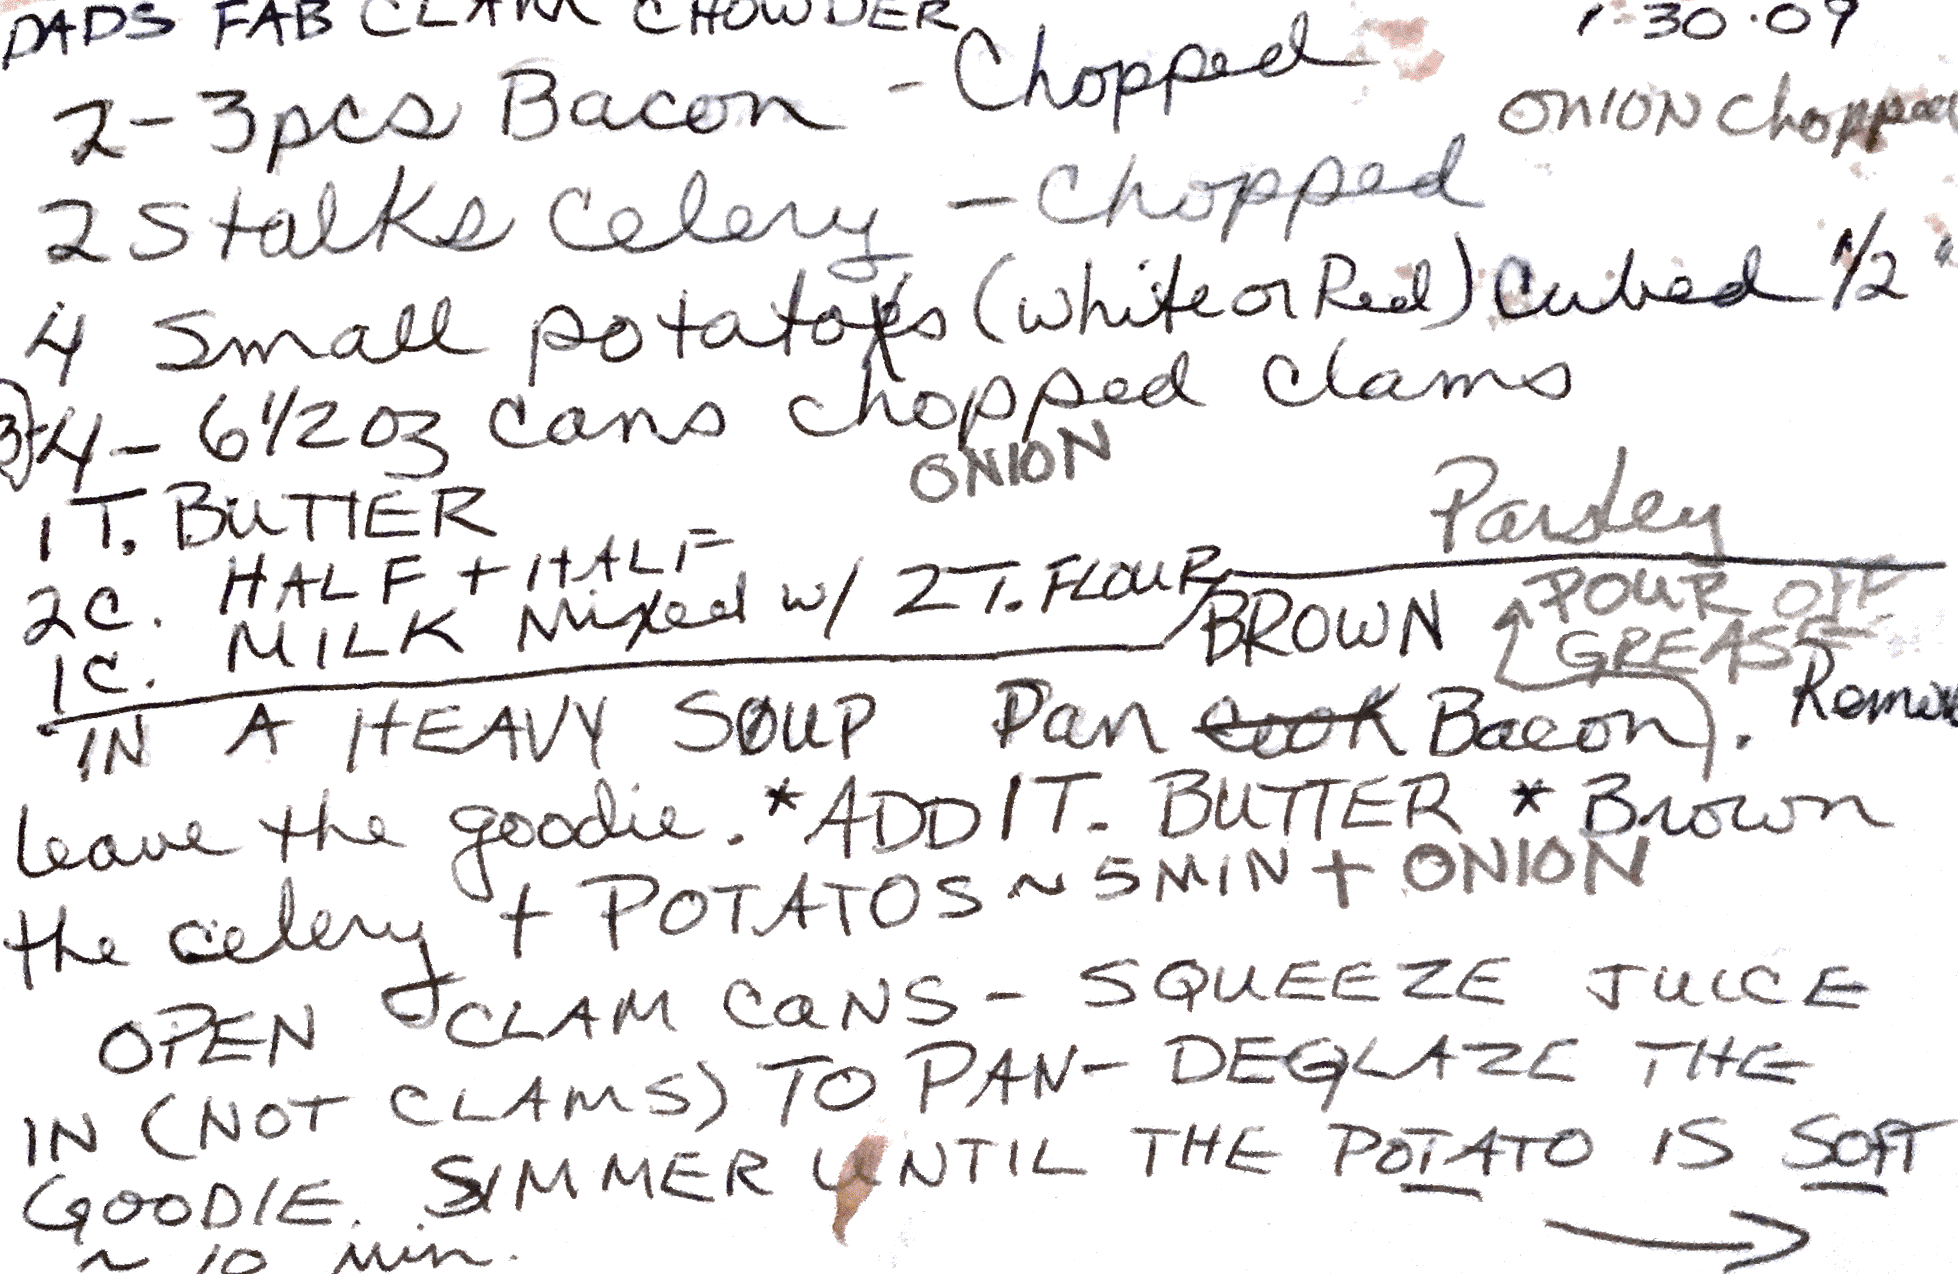 DADS FAB CLAM CHOWDER 1-30-09
2-3pcs Bacon - Chopped
ONION Chopped
2 Stalks Celery - Chopped
4 Small potatoes (white or Red) Cubed 1/2"
3-4 - 6 1/2 oz cans chopped clams
ONION
1 T. BUTTER
Parsley
2C. HALF + HALF
1C. MILK Mixed w/ 2T. FLOUR
POUR OFF
GREASE
BROWN
IN A HEAVY SOUP Pan Cook Bacon. Remove
leave the goodie. *ADD 1T. BUTTER * Brown
the celery + POTATOS ~ 5 MIN + ONION
OPEN CLAM CANS - SQUEEZE JUICE
IN (NOT CLAMS) TO PAN - DEGLAZE THE
GOODIE. SIMMER UNTIL THE POTATO IS SOFT
~ 10 min.